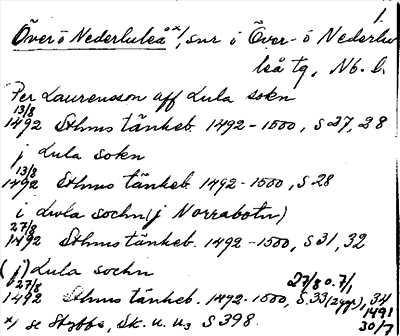 1.
Över o Nederluleå x), snr i Över- o Nederlu
leå tg, Nb. l.
Per Laurensson aff Lula sokn
13/8
1492 Sthms tänkeb. 1492-1500, S 27, 28
j Lula sokn
13/8
1492 Sthms tänkeb. 1492-1500, S 28
i Lwla sochn (j Norrabotn)
27/8
1492 Sthms tänkeb. 1492-1500, S 31, 32
(j) Lula sochn
27/8 27/8 o. 7/1
1492 Sthms tänkeb. 1492-1500, S. 33 (2 ggr), 34
1491
x) se Stybbe, Sk. u. u3 S 398. 30/7